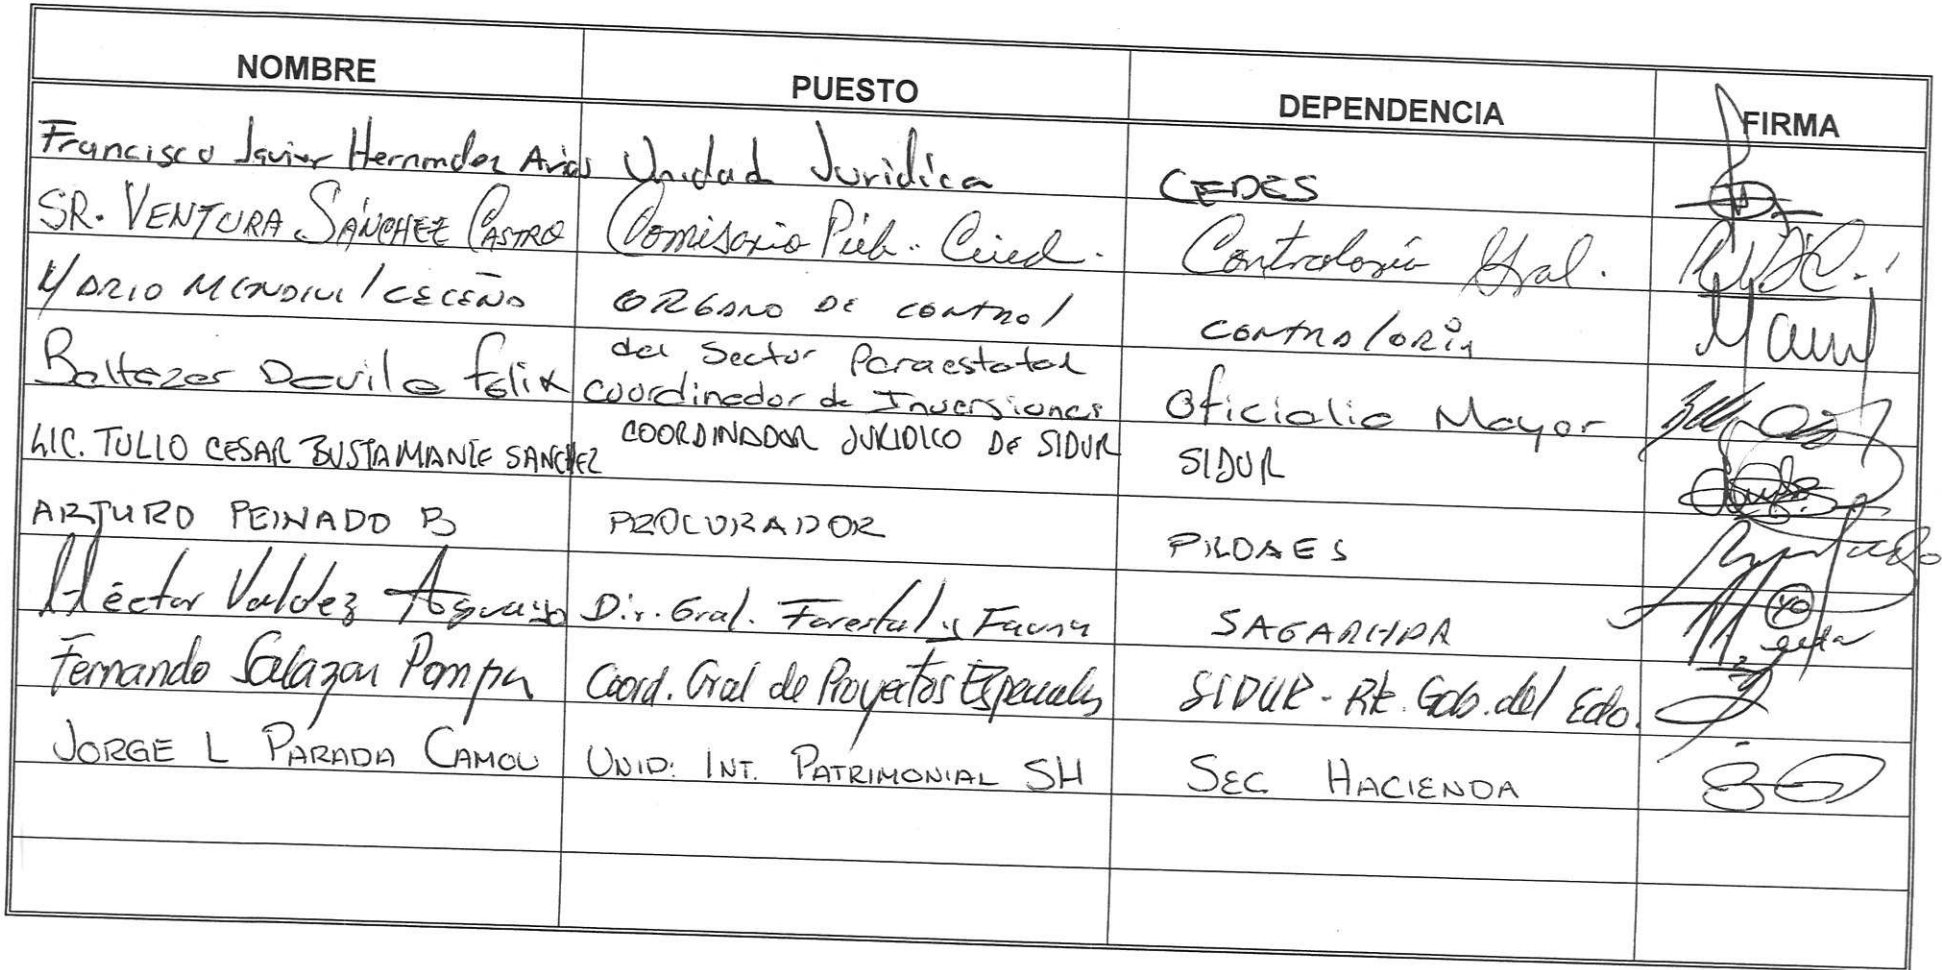 NOMBRE PUESTO DEPENDENCIA FIRMA
Francisco Javier Hernandez Arias Unidad Juridica CEDES
SR. VENTURA SÁNCHEZ CASTRO Comisario Púb. Ciud. Contraloría Gral.
MARIO MENDIVIL CECEÑA ORGANO DE CONTROL CONTRALORIA
del Sector Paraestatal
Baltazar Davila Felix Coordinador de Inversiones Oficialia Mayor
LIC. TULIO CESAR BUSTAMANTE SANCHEZ COORDINADOR JURIDICO DE SIDUR SIDUR
ARTURO PEINADO B PROCURADOR PROAES
Héctor Valdez Aguayo Dir. Gral. Forestal y Fauna SAGARHPA
Fernando Salazar Pompa Coord. Gral de Proyectos Especiales SIDUR - Rte. Gob. del Edo.
JORGE L PARADA CAMOU UNID: INT. PATRIMONIAL SH SEC HACIENDA